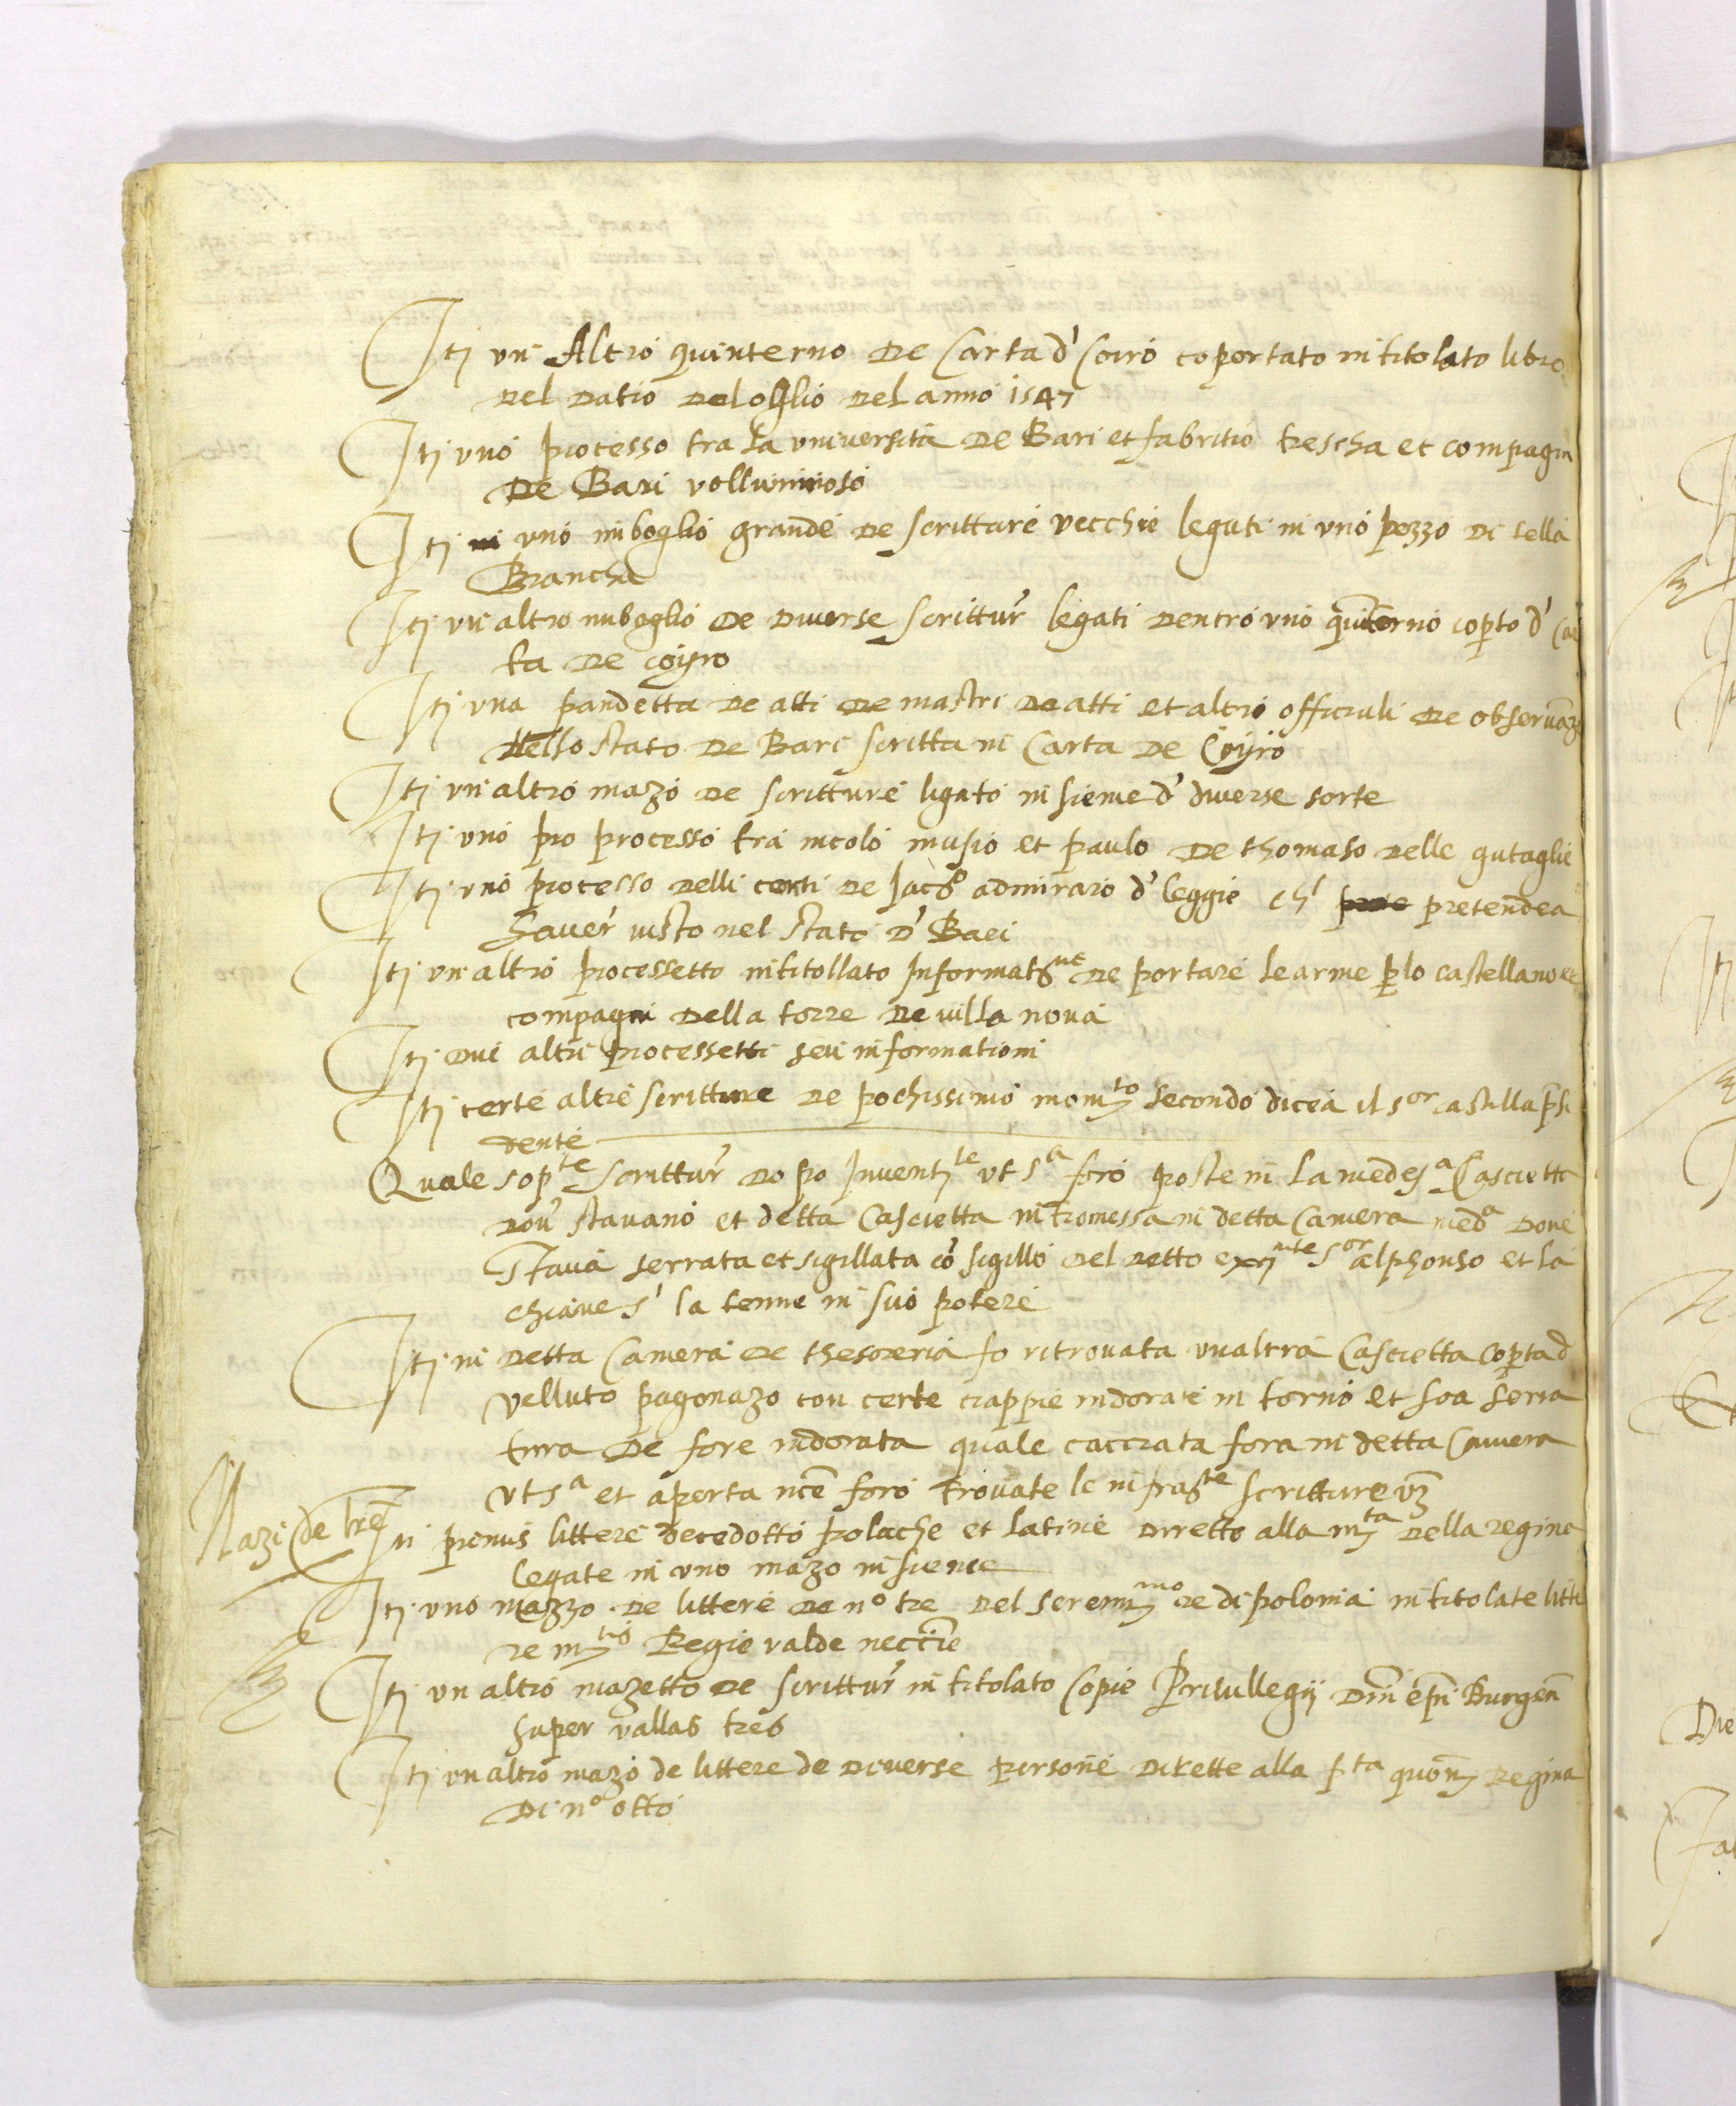 Itj un Altro quinterno de Carta d' Coiro coportato intitolato libro
del datio del oglio del anno 1547
Itj uno processo tra la università de Bari et fabritio trescha et compagni
de Bari volluminoso
Itj uno inboglio grande de scritture vecchie legati in uno pezzo di tella
Biancha
Itj un altro inboglio de diverse scrittur' legati dentro uno quinterno coperto d' Car
ta de coyro
Itj una pandetta de atti de mastri de atti et altri officiali de observanza
dello stato de Bari scritta in Carta de Coyro
Itj un altro mazo de scritture ligato insieme d' diverse sorte
Itj uno pro processo tra nicolo musio et paulo de thomaso delle gutaglie
Itj uno processo delli conti de Jac.o admiraro d' leggie ch' pretendea
haver' visto nel stato d' Bari
Itj un altro processetto intitollato Informat.ne de portare le arme p lo castellano et
compagni della torre de villa nova
Itj dui altri processetti seu informationi
Itj certe altre scritture de pochissimo mom.to secondo dicea il s.or castilla presi
dente
Quale sop.te scrittur' dopo Invent.te ut s.a foro poste in la medes.a Cascietta
dov' stavano et detta Cascietta intromessa in detta Camera med.a dove
stava serrata et sigillata co' sigillo del detto exc.nte s.or alphonso et la
chiave s' la tenne in suo potere
Itj in detta Camera de thesoreria fo ritrovata un altra Cascietta coperta d'
velluto pagonazo con certe ciappie indorate in torno et soa serra
tura de fore indorata quale cacciata fora in detta Camera
ut s.a et aperta foro trovate le infras.te scritture vz
Mazi de tre In primis littere decedotto polache et latine dirette alla m.ta della regina
legate in uno mazo insieme
Itj uno mazzo de littere de n.o tre del seren.mo re di polonia intitolate litte
re m.tis Regie valde necc.rie
Itj un altro mazetto de scrittur' intitolato Copie Privillegij Dni epi Burgen
super vallas tres
Itj un altro mazo de littere de diverse persone dirette alla p.ta quon. Regina
di n.o otto